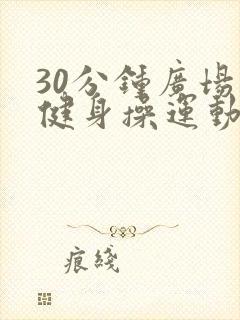 30分鍾廣場
健身操運動
痕綫